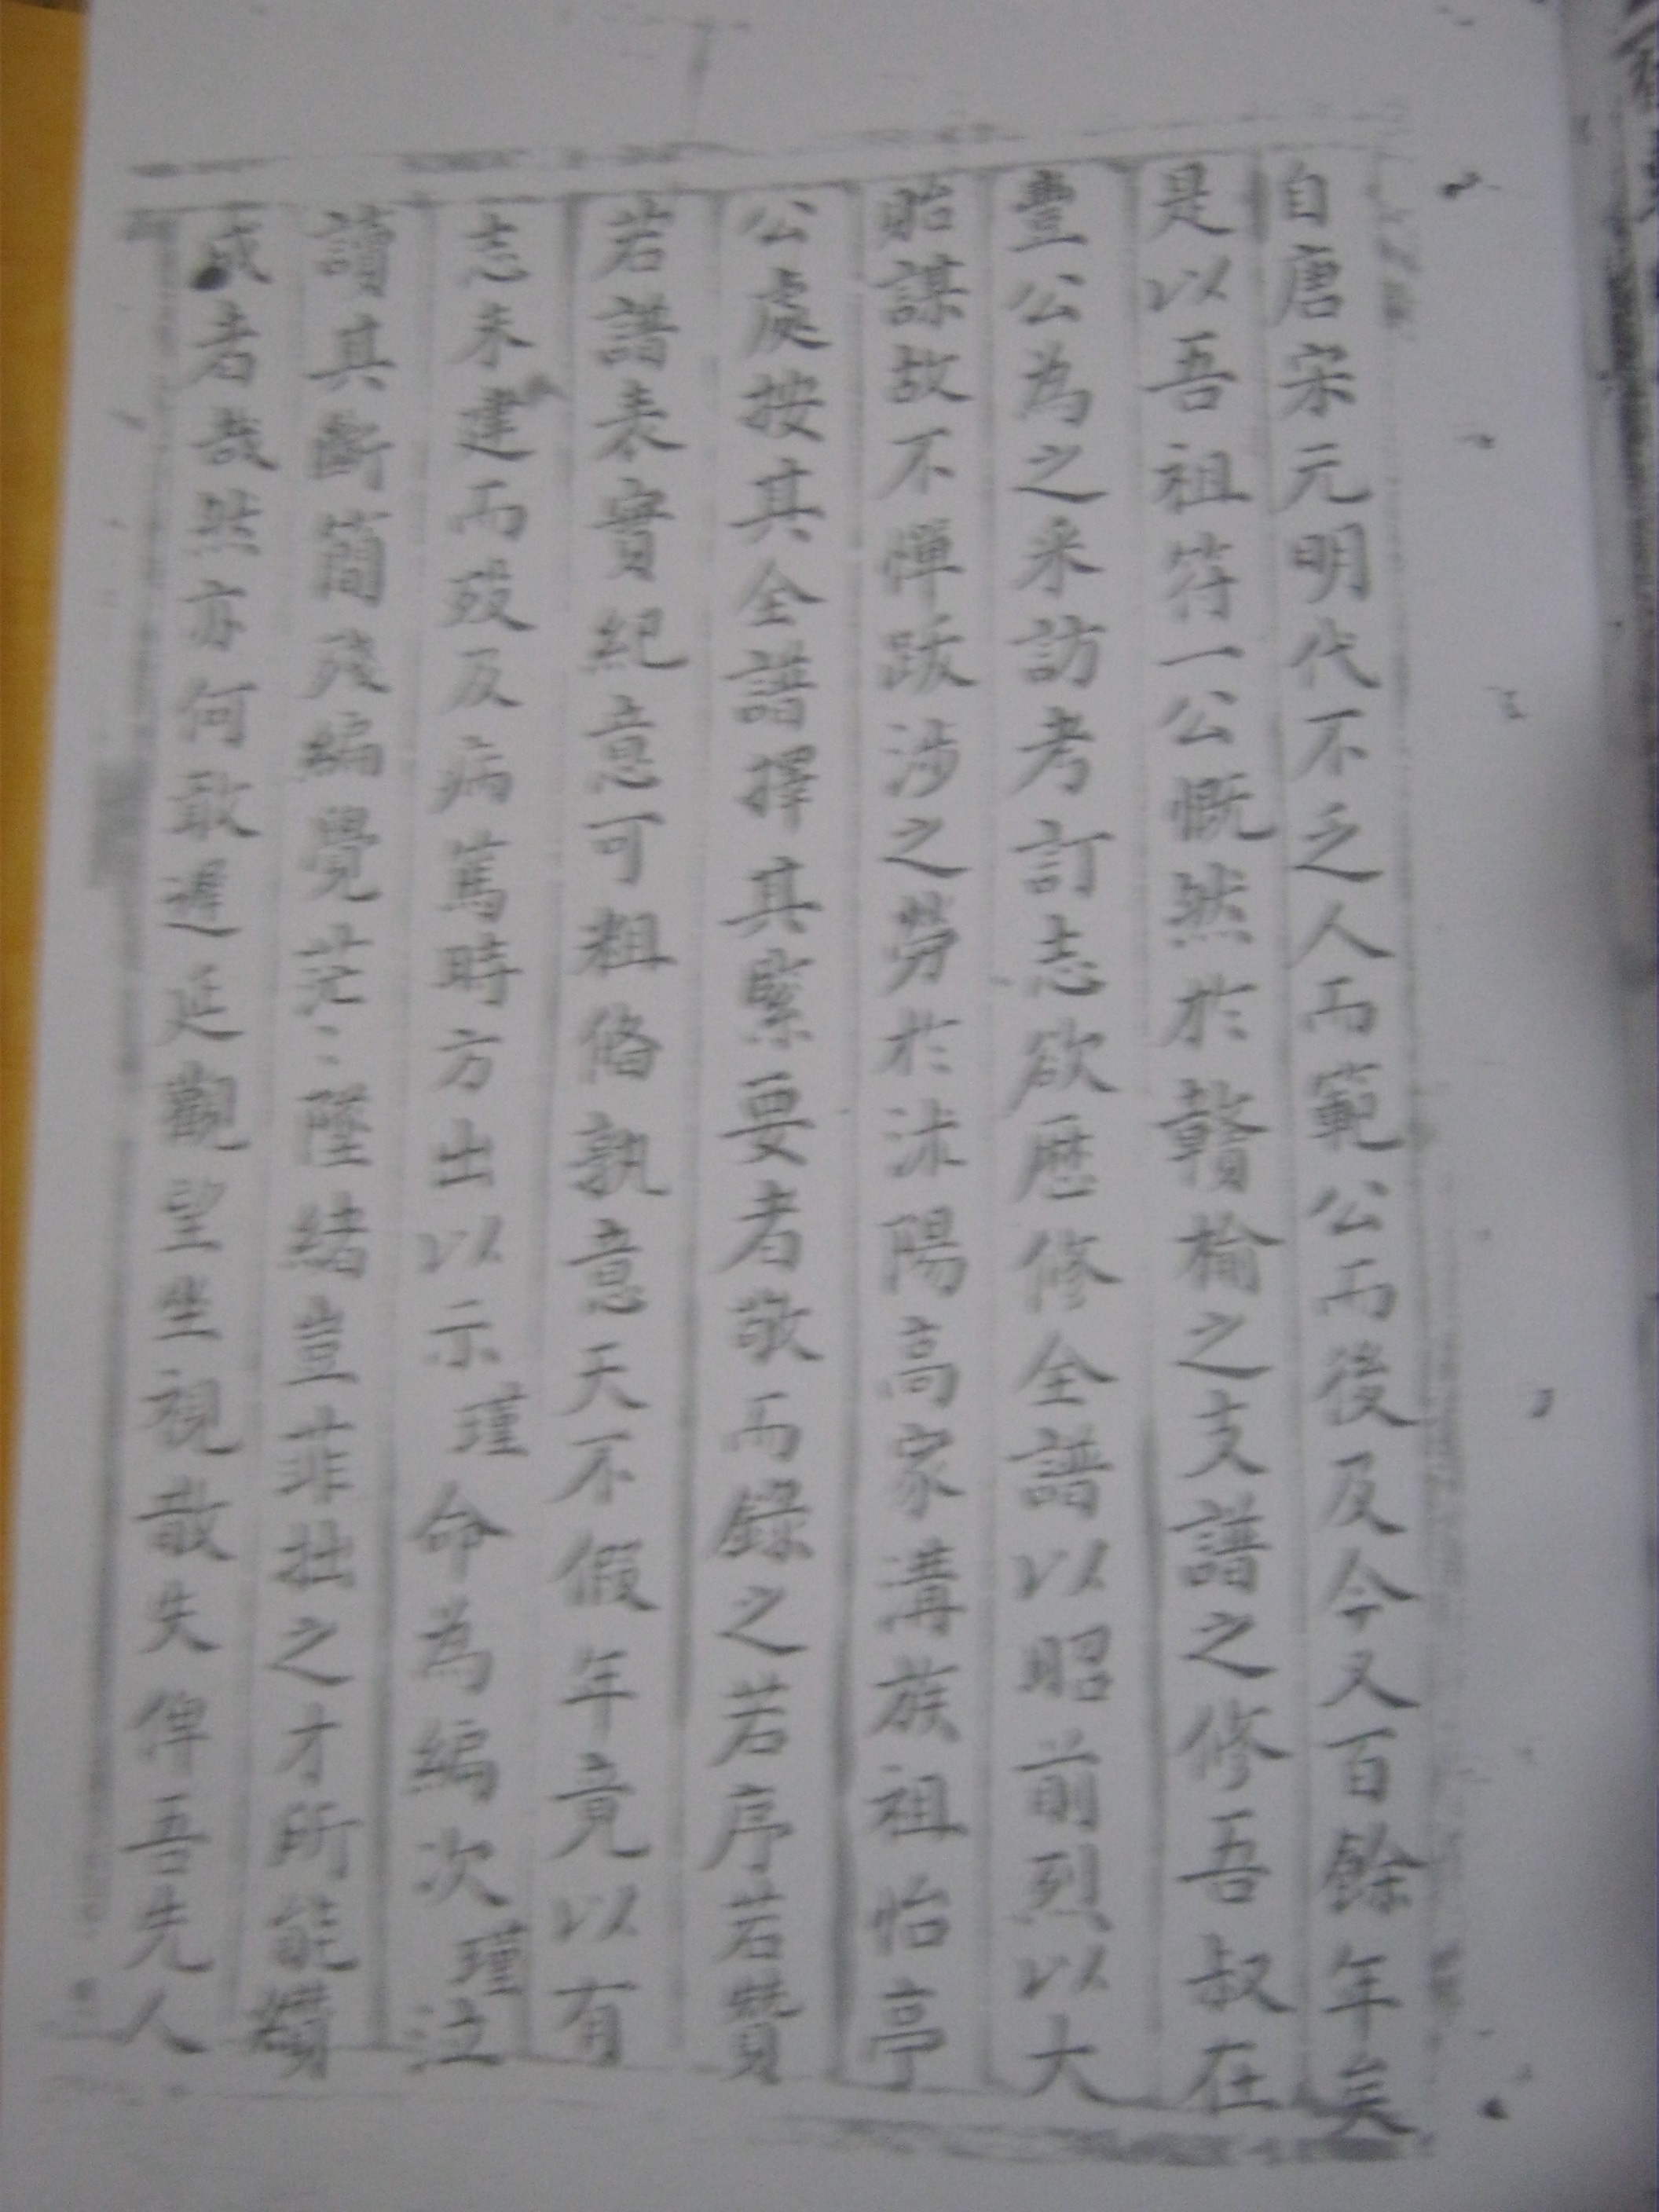 自唐宋元明代不乏人而範公而後及今又百餘年矣
是以吾祖符一公慨然於贛榆之支譜之修吾叔在
豊公為之来訪考訂志欲歷修全譜以昭前烈以大
貽謀故不憚跋涉之勞於沭陽高家溝族祖怡亭
公處按其全譜擇其緊要者敬而錄之若序若贊
若譜表實紀意可粗俻孰意天不假年竟以有
志未建而歿及病篤時方出以示瑾命為編次瑾泣
讀其斷簡殘編覺茫〻墜緒豈菲拙之才所能纘
成者哉然亦何敢遲延觀望坐視散失俾吾先人